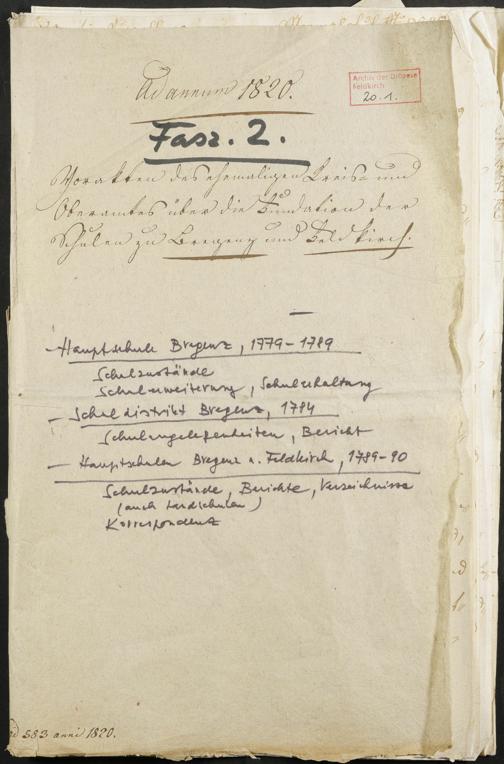 Ad annum 1820.
Archiv der Diözese
Feldkirch
20.1.
Fasz. 2.
Vorakten des ehemaligen Kreis- und
Oberamtes über die Fundation der
Schulen zu Bregenz und Feldkirch.
- Hauptschule Bregenz, 1779-1789
Schulzustände
Schulerweiterung, Schulerhaltung
- Schuldistrikt Bregenz, 1784
Schulangelegenheiten, Bericht
- Hauptschulen Bregenz u. Feldkirch, 1789-90
Schulzustände, Berichte, Verzeichnisse
(auch Landschulen)
Korrespondenz
ad 583 anni 1820.